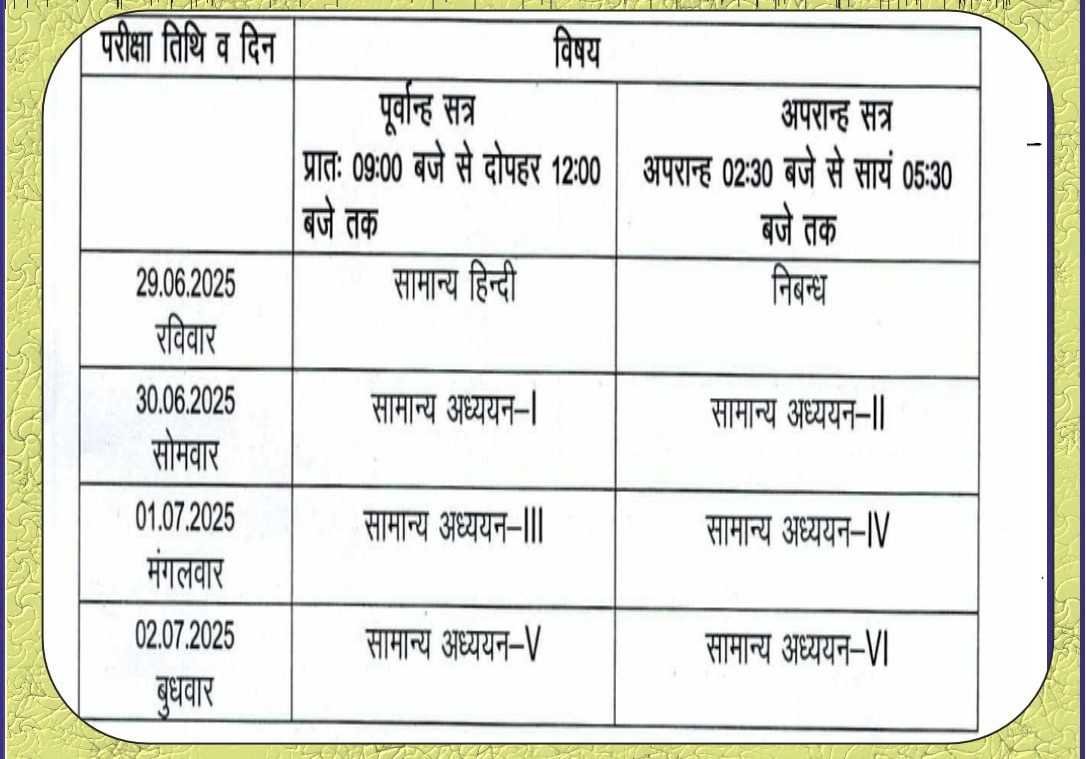 परीक्षा तिथि व दिन
विषय
पूर्वान्ह सत्र
प्रातः 09:00 बजे से दोपहर 12:00
बजे तक
अपरान्ह सत्र
अपरान्ह 02:30 बजे से सायं 05:30
बजे तक
29.06.2025
रविवार
सामान्य हिन्दी
निबन्ध
30.06.2025
सोमवार
सामान्य अध्ययन–I
सामान्य अध्ययन–II
01.07.2025
मंगलवार
सामान्य अध्ययन–III
सामान्य अध्ययन–IV
02.07.2025
बुधवार
सामान्य अध्ययन–V
सामान्य अध्ययन–VI